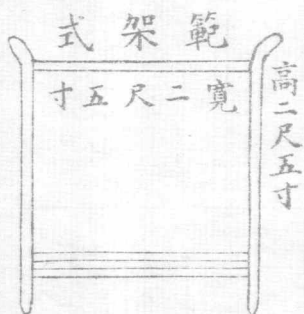 範架式
寬二尺五寸
高二尺五寸